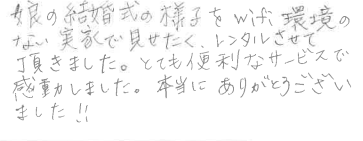 娘の結婚式の様子をwifi環境の
ない実家で見せたく、レンタルさせて
頂きました。とても便利なサービスで
感動しました。本当にありがとうござい
ました!!